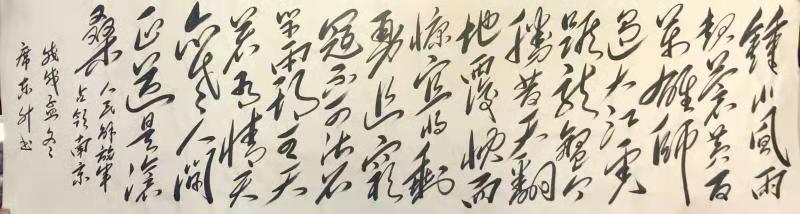 鍾山風雨
起蒼黄百
萬雄師
過大江虎
踞龍盤今
勝昔天翻
地覆慨而
慷宜將剩
勇追窮
寇不可沽名
学霸王天
若有情天
亦老人間
正道是滄
桑
人民解放軍
占領南京
戊戌孟冬
席东升书